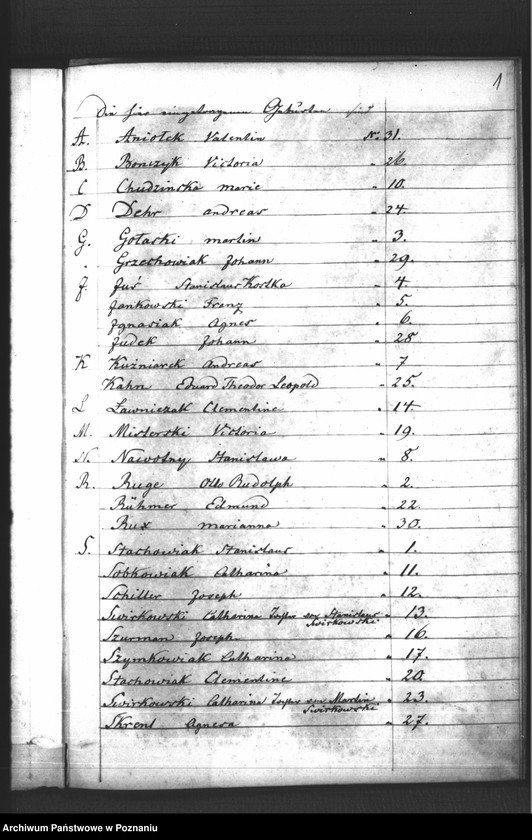 1
Die hier eingetragenen Geburten sind
A. Aniołek Valentin No. 31.
B. Bonczyk Victoria " 26.
C Chudzinska Marie " 10.
D Dehr Andreas " 24.
G. Gołaski Martin " 3.
" Grzechowiak Johann " 29.
J. Juś Stanislaus Kostka " 4.
Jankowski Franz " 5.
Jgnasiak Agnes " 6.
Judek Johann " 28
K Kuźniarek Andreas " 7
Kahn Eduard Theodor Leopold " 25.
L Ławniczak Clementine " 14.
M. Misterski Victoria " 19.
N. Nawolny Stanisława " 8.
R. Ruge Otto Rudolph " 2.
Rühmer Edmund " 22.
Rux Marianna " 30.
S. Stachowiak Stanislaus " 1.
Sobkowiak Catharina " 11.
Schiller Joseph " 12.
Swirkowski Catharine Tochter von Stanislaus Swirkowski " 13.
Szurman Joseph " 16.
Szymkowiak Catharina " 17.
Stachowiak Clementine " 20.
Swirkowski Catharine Tochter von Martin Swirkowski " 23.
Skrent Agnesa " 27.
Archiwum Państwowe w Poznaniu